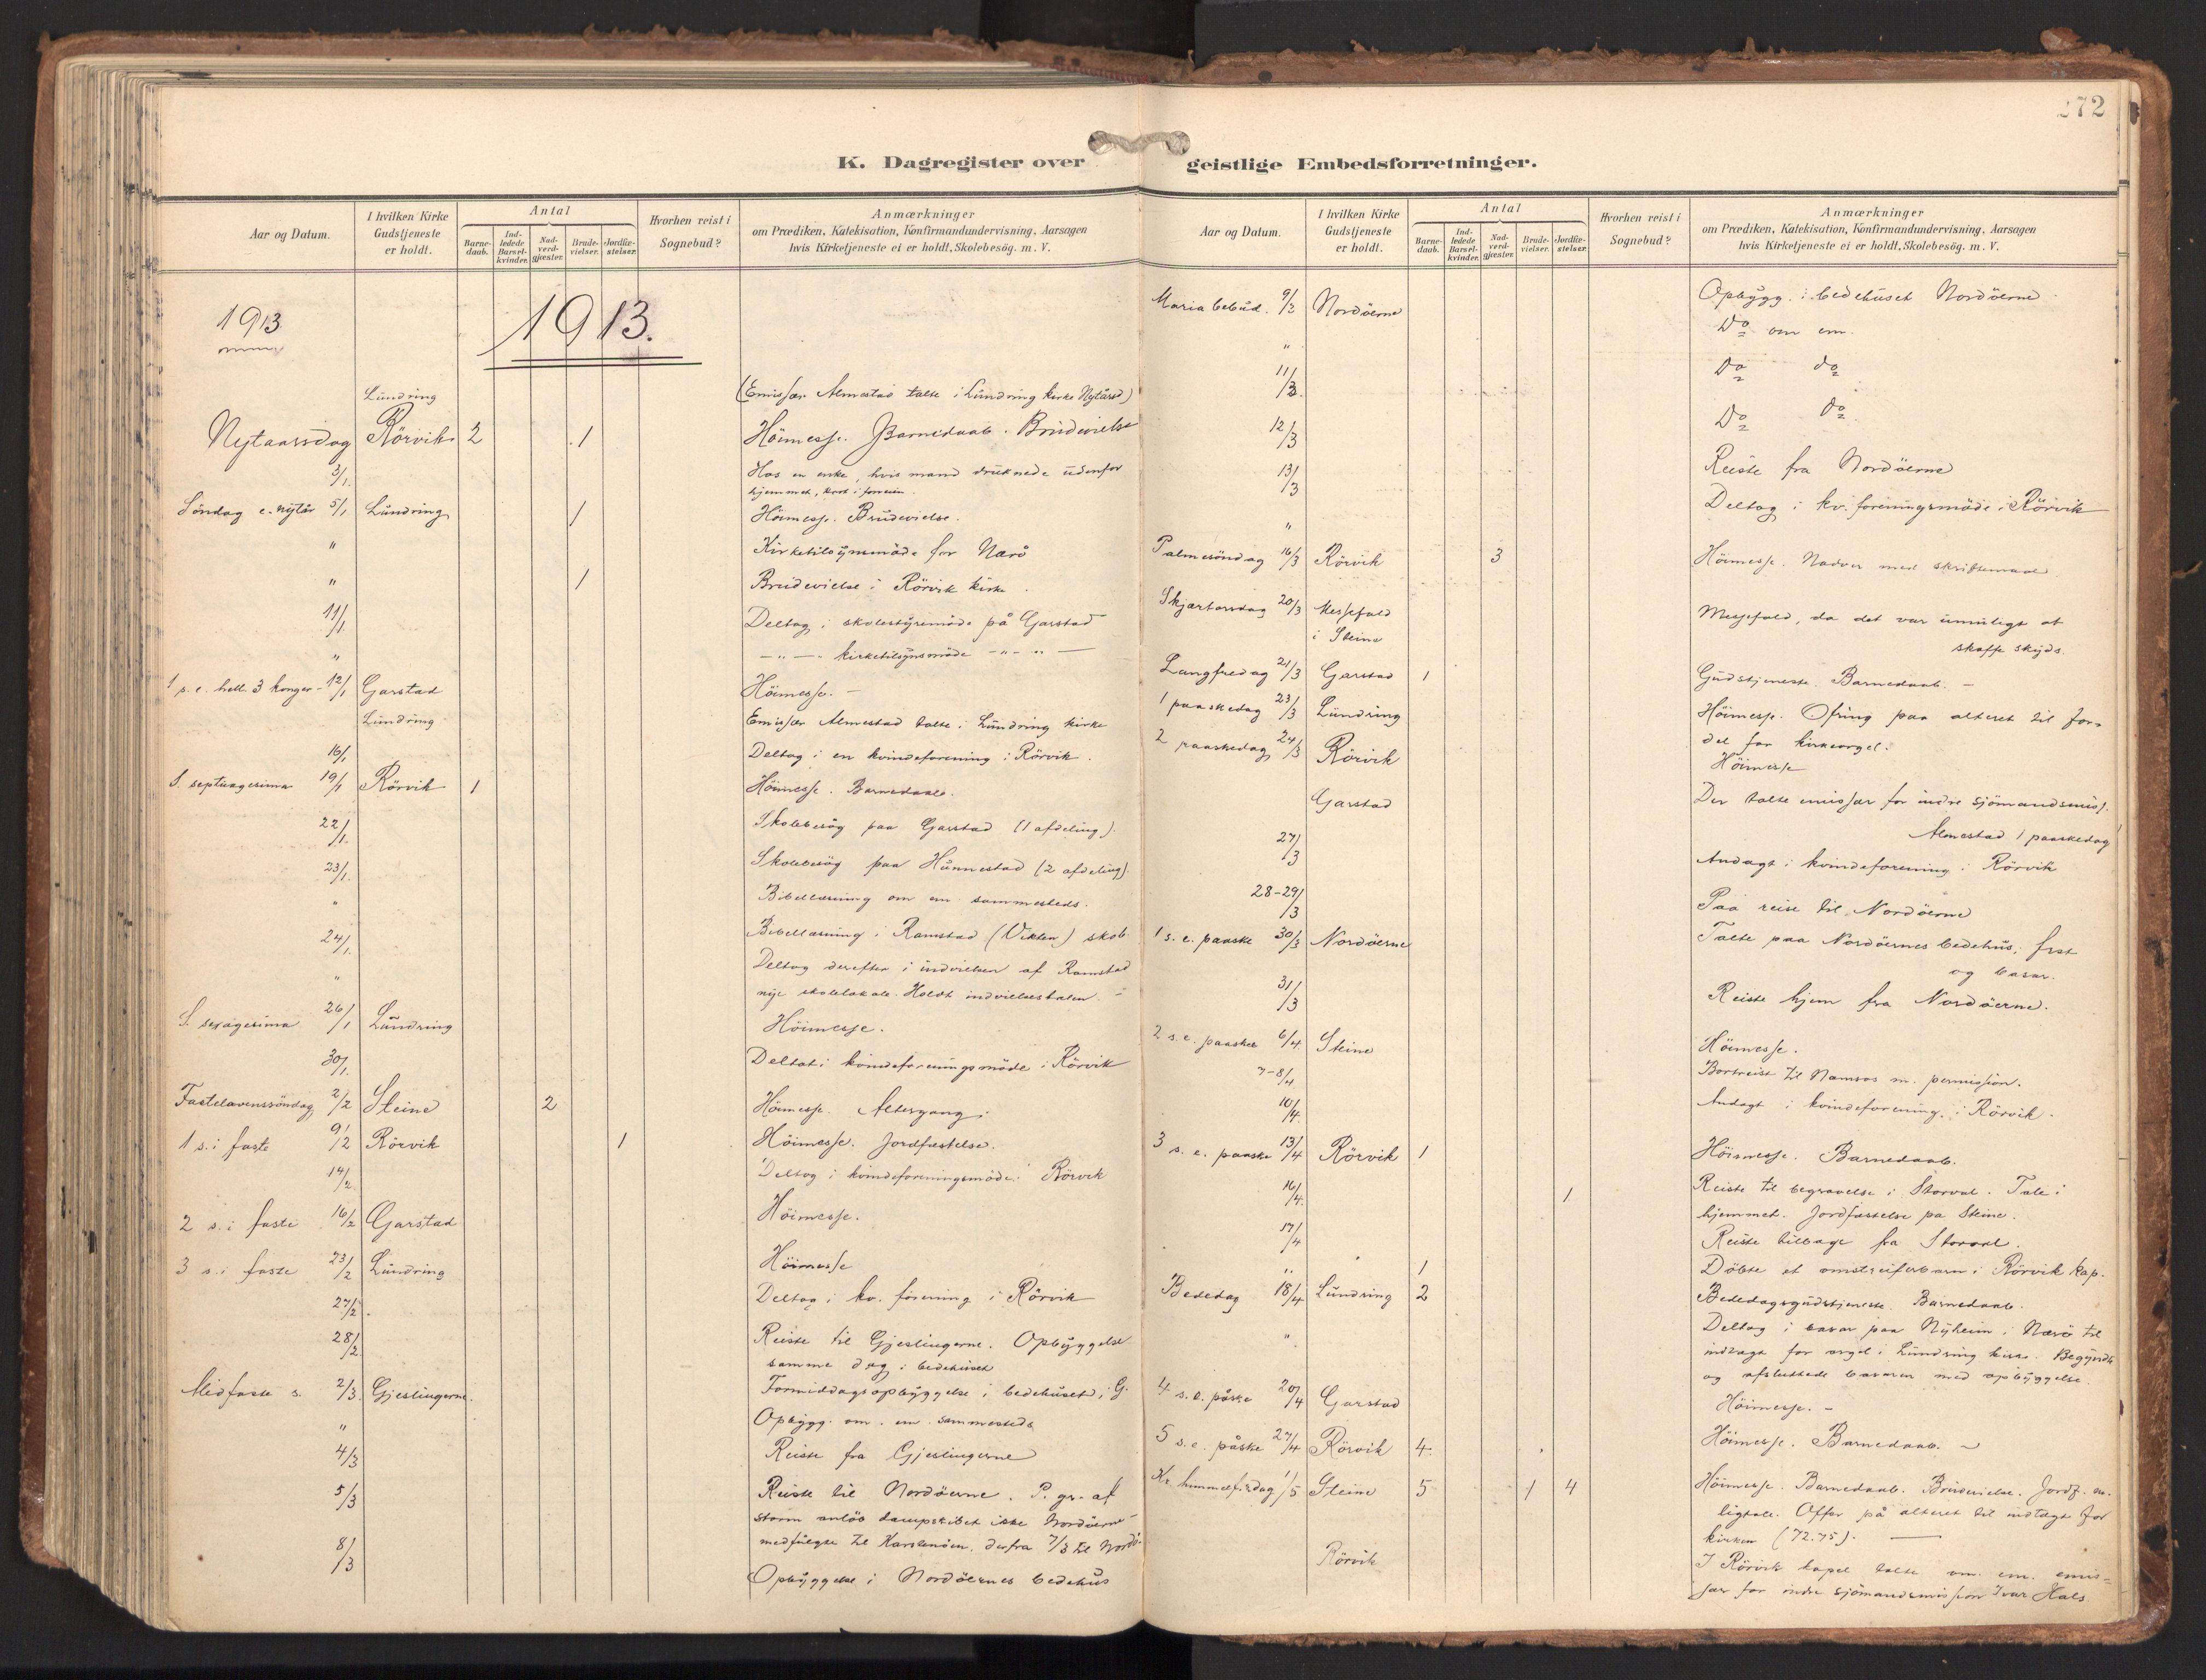 272
K. Dagregister over geistlige Embedsforretninger.
Aar og Datum.
I hvilken Kirke Gudstjeneste er holdt.
Antal
Barne-daab.
Ind-ledede Barsel-kvinder.
Nad-verd-gjæster.
Brude-vielser.
Jordfæ-stelser.
Hvorhen reist i Sognebud?
Anmærkninger
om Prædiken, Katekisation, Konfirmandundervisning, Aarsagen
hvis Kirketjeneste ei er holdt, Skolebesög. m. V.
1913
1913.
Lundring (Emissær Almestad talte i Lundring kirke Nytårsd)
Nytaarsdag Rörvik 2 1 Höimesse. Barnedaab. Brudevielse
3/1. Hos en enke, hvis mand druknede udenfor
hjemmet,
Söndag e. nytår 5/1 Lundring 1 Höimesse. Brudevielse.
" Kirketilsynsmöde for Nærö
" 1 Brudevielse i Rörvik kirke.
11/1. Deltog i skolestyremöde på Garstad
" — " — kirketilsynsmöde — " — " —
1 s. e. hell. 3 konger 12/1 Garstad Höimesse. —
Lundring Emissær Almestad talte i Lundring kirke
16/1 Deltog i en kvindeforening i Rörvik.
S. septuagesima 19/1 Rörvik 1 Höimesse. Barnedaab.
22/1. Skolebesög paa Garstad (1 afdeling).
23/1. Skolebesög paa Hunnestad (2 afdeling).
" Bibellæsning om em. sammesteds.
24/1. Bibellæsning i Ramstad (Vikten) skole
" Deltog derefter i indvielsen af Ramstad
nye skolelokale. Holdt indvielsestalen. —
S. sexagesima 26/1 Lundring Höimesse.
30/1. Deltat i kvindeforeningsmöde i Rörvik
Fastelavenssöndag 2/2 Steine 2 Höimesse. Altergang.
1 s. i faste 9/2 Rörvik 1 Höimesse. Jordfæstelse.
14/2. Deltog i kvindeforeningsmöde i Rörvik
2 s. i faste 16/2 Garstad Höimesse.
3 s. i faste 23/2 Lundring Höimesse
27/2. Deltog i kv. forening i Rörvik
28/2. Reiste til Gjeslingerne. Opbyggelse
samme dag i bedehuset
Midfaste s. 2/3. Gjeslingerne. Formiddagsopbyggelse i bedehuset i G.
" Opbygg. om em. sammesteds
4/3 Reiste fra Gjeslingerne
5/3 Reiste til Nordöerne. P. gr. af
storm anlöb dampskibet ikke Nordöerne
medfulgte til Karstenöen, derfra 7/3 til Nordö.
8/3 Opbyggelse i Nordöernes bedehus
Maria bebud. 9/3 Nordöerne Opbygg. i bedehuset Nordöerne
" Do om em.
11/3. Do do
12/3 Do Do
13/3 Reiste fra Nordöerne
" Deltog i kv. foreningsmöde i Rörvik
Palmesöndag 16/3 Rörvik 3 Höimesse. Nadver med skriftemaal.
Skjærtorsdag 20/3 Messefald i Steine Messefald, da det var umuligt at
skaffe skyds.
Langfredag 21/3 Garstad 1 Gudstjeneste. Barnedaab. —
1 paaskedag 23/3 Lundring Höimesse. Ofring paa alteret til for-
del for kirkeorgel.
2 paaskedag 24/3 Rörvik Höimesse
Garstad Der talte emissær for indre sjömandsmiss.
Almestad 1 paaskedag
27/3 Andagt i kvindeforening i Rörvik
28-29/3 Paa reise til Nordöerne
1 s. e. paaske 30/3 Nordöerne Talte paa Nordöernes bedehus; fest
og basar.
31/3 Reiste hjem fra Nordöerne.
2 s. e. paaske 6/4. Steine Höimesse.
7-8/4 Bortreist til Namsos m. permission.
10/4. Andagt i kvindeforening i Rörvik.
3 s. e. paaske 13/4 Rörvik 1 Höimesse. Barnedaab.
16/4. 1 Reiste til begravelse i Storval. Tale i
hjemmet. Jordfæstelse på Steine.
17/4 Reiste tilbage fra Storval.
" 1 Döbte et omstreiferbarn i Rörvik kap.
Bededag 18/4 Lundring 2 Bededagsgudstjeneste. Barnedaab.
" Deltog i basar paa Nyheim i Nærö til
indtægt for orgel i Lundring kirke. Begyndte
og afsluttede basaren med opbyggelse.
4 s. e. påske 20/4 Garstad Höimesse. —
5 s. e. påske 27/4 Rörvik 4. Höimesse. Barnedaab. —
Kr. himmelf. dag 1/5 Steine 5 1 4 Höimesse. Barnedaab. Brudevielse. Jordf. m.
ligtale. Offer på alteret til indtægt for
kirken (72.75). —
Rörvik I Rörvik kapel talte om em. emis-
sær for indre sjömandsmission Ivar Hals